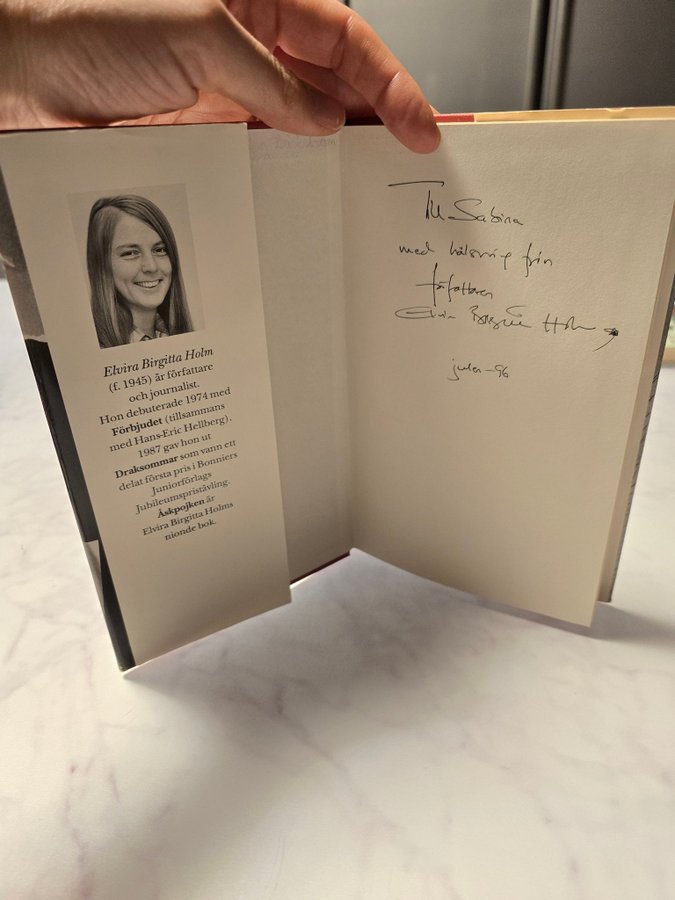 Elvira Birgitta Holm
(f. 1945) är författare
och journalist.
Hon debuterade 1974 med
Förbjudet (tillsammans
med Hans-Eric Hellberg).
1987 gav hon ut
Draksommar som vann ett
delat första pris i Bonniers
Juniorförlags
Jubileumspristävling.
Askpojken är
Elvira Birgitta Holms
nionde bok.
Till Sabina
med hälsning från
författaren
Elvira Birgitta Holm
julen -96